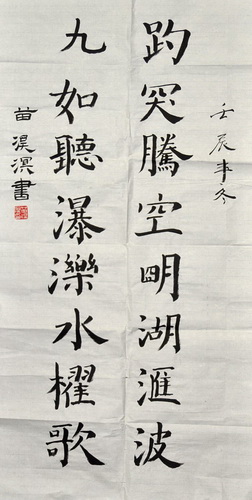 壬辰年冬
趵突騰空眀湖滙波
九如聽瀑濼水櫂歌
苗淏溟書